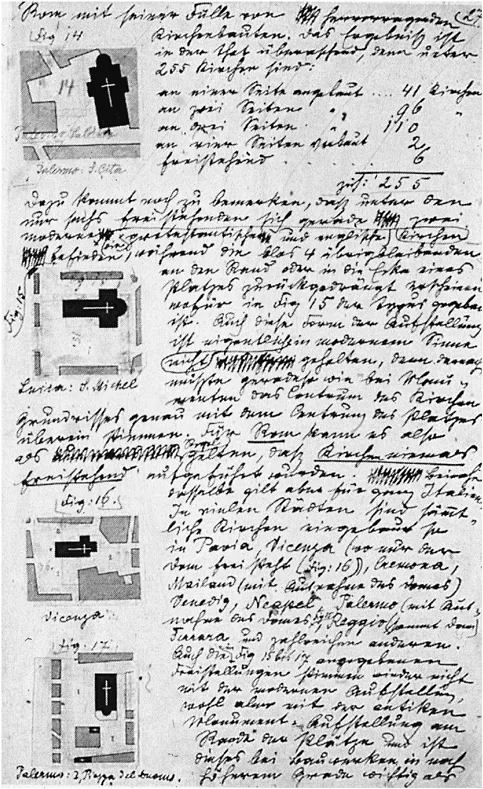 Rom mit seiner Fülle von hervorragenden (27.
Kirchenbauten. Das Ergebniß ist
in der That überraschend, denn unter
255 Kirchen sind:
an einer Seite angebaut .... 41 Kirchen
an zwei Seiten " 96 "
an drei Seiten " 110
an vier Seiten verbaut 2
freistehend . . 6
zus: 255
Fig 14
14
Palermo: S. Cita
Dazu kommt noch zu bemerken, daß unter den
nur sechs freistehenden sich gerade zwei
moderne (protestantische und englische) Kirchen
befinden, während die blos 4 übrigbleibenden
an den Rand oder in die Ecke eines
Platzes zurückgedrängt erscheinen
wofür in Fig 15 der Typus gegeben
ist. Auch diese Form der Aufstellung
ist eigentlich in modernem Sinne
nicht gehalten, denn darnach
müßte geradeso wie bei Monu-
menten das Centrum des Kirchen
Grundrisses genau mit dem Centrum des Platzes
überein stimmen. Für Rom kann es also
als Regel gelten, daß Kirchen niemals
freistehend aufgeführt wurden. Beinahe
dasselbe gilt aber für ganz Italien.
In vielen Städten sind sämmt-
liche Kirchen eingebaut so
in Pavia, Vicenza (wo nur der
Dom frei steht (Fig: 16)), Cremona,
Mailand (mit Ausnahme des Domes)
Venedig, Neapel, Palermo (mit Aus-
nahme des Domes), Reggio (sammt Dom)
Ferrara und zahlreichen anderen.
Auch die Fig 15 bis 17 angegebenen
Freistellungen stimmen wieder nicht
mit der modernen Aufstellung,
wohl aber mit der antiken
Monument-Aufstellung am
Rande der Plätze und ist
dieses bei Bauwerken in noch
höherem Grade wichtig als
Fig: 15
Lucca: S. Michel
Fig: 16.
Vicenza:
Fig: 17.
Palermo: Piazza del Duomo.